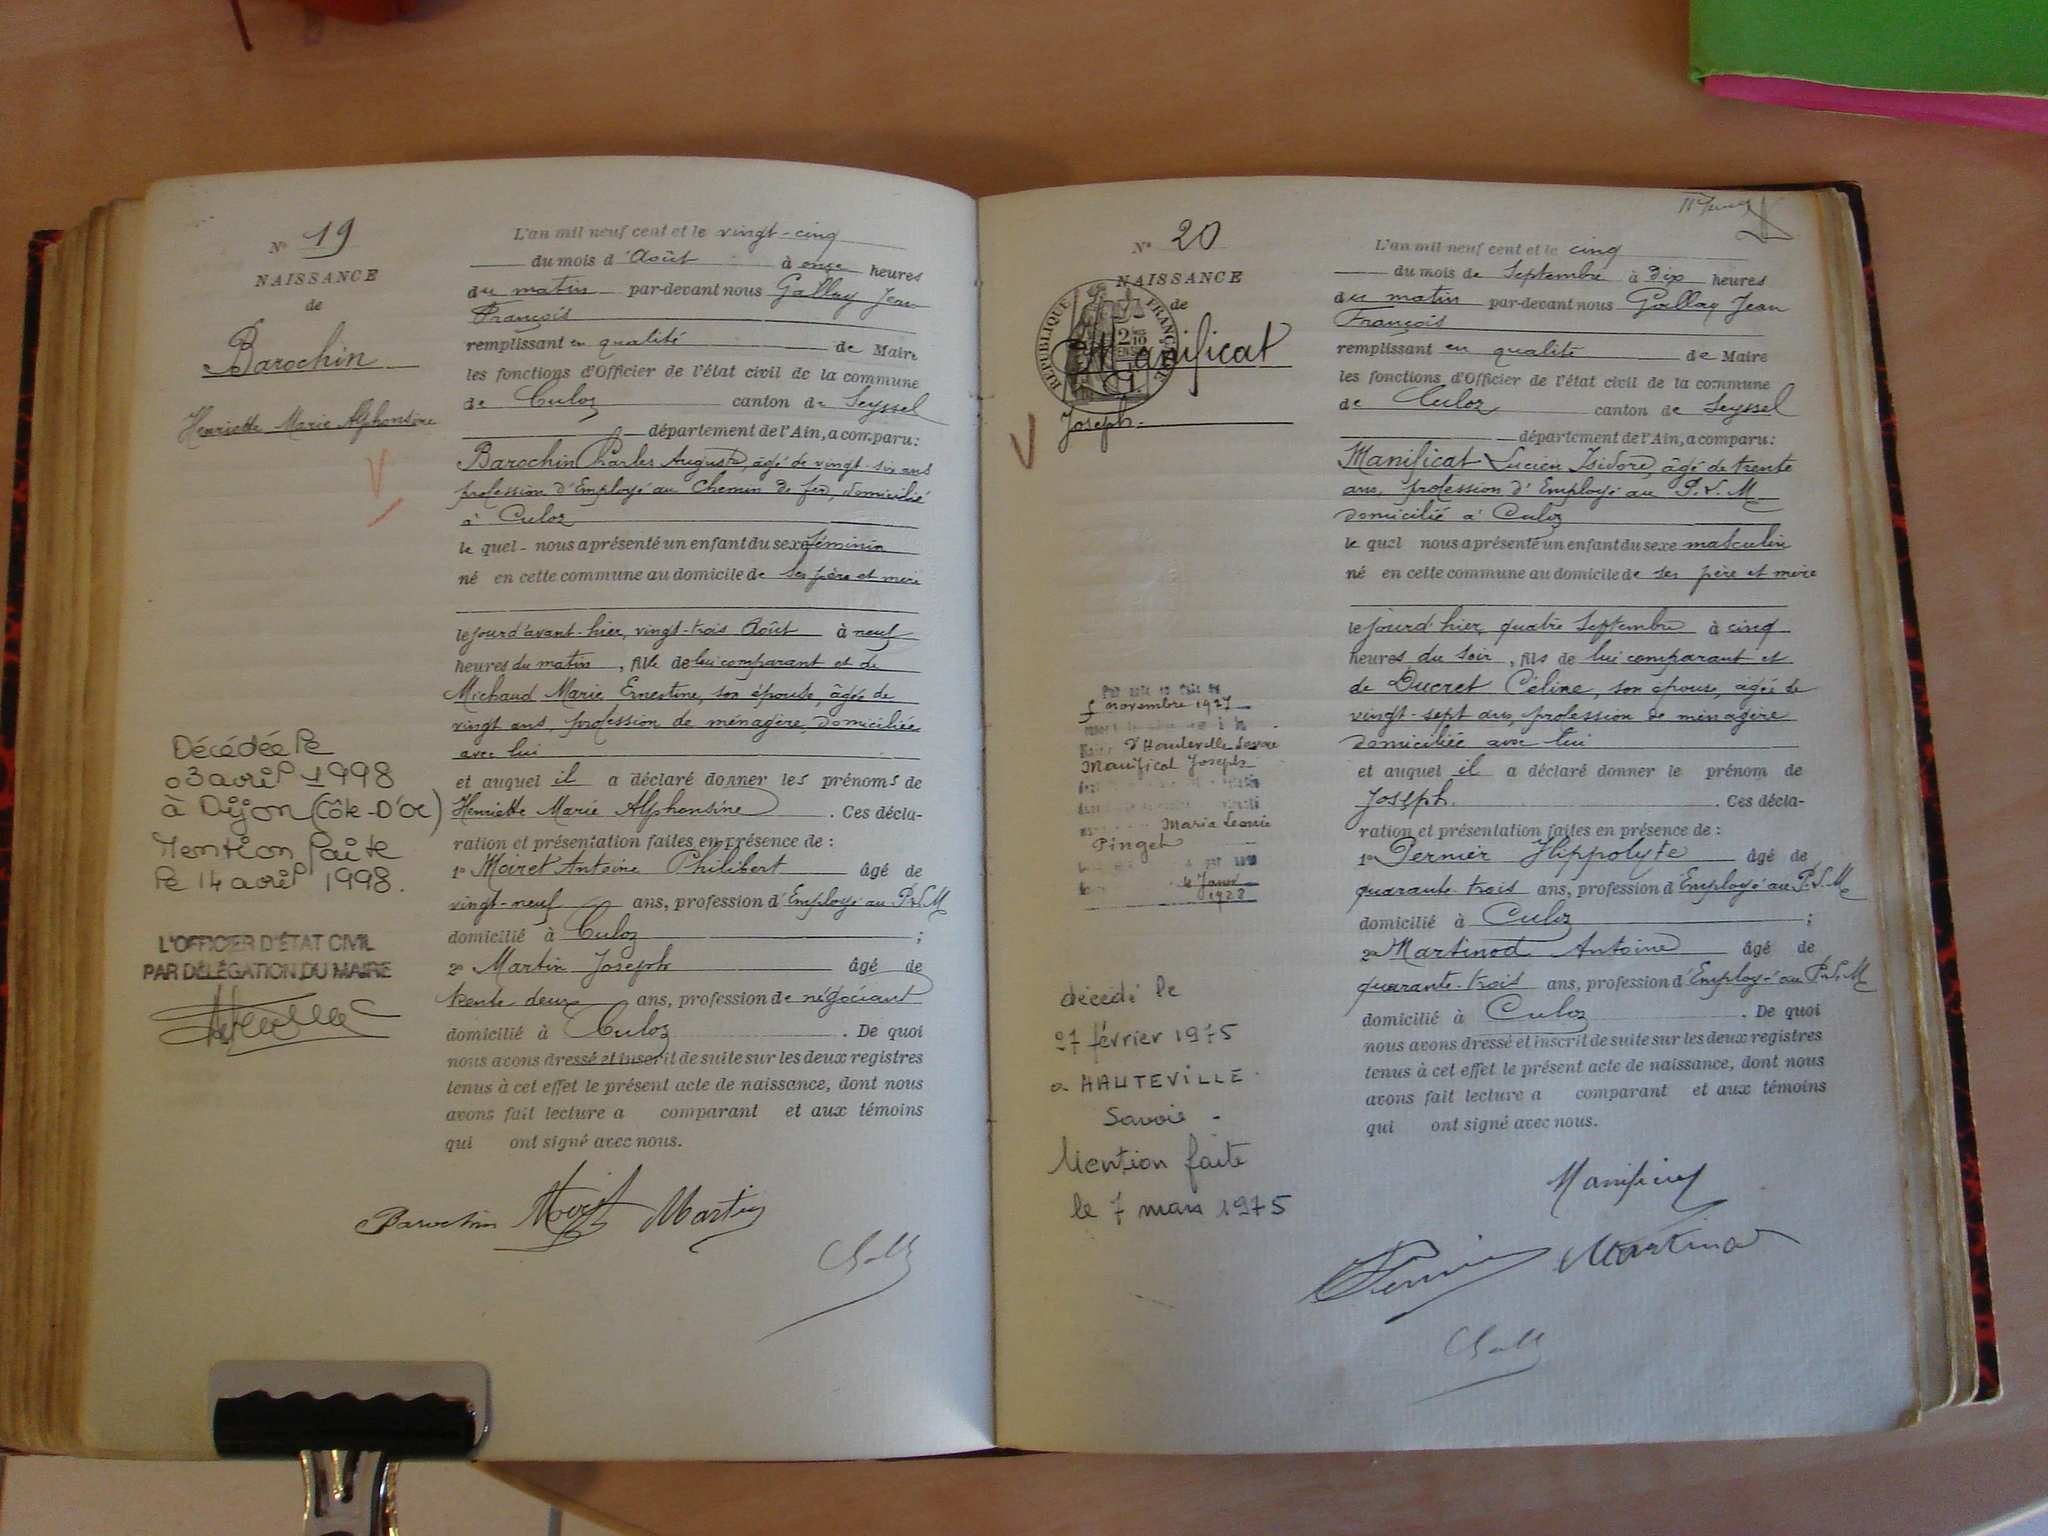 N° 19
NAISSANCE
de
Barochin
Henriette Marie Alphonsine
Décédée le
03 avril 1998
à Dijon (Côte-D'Or)
Mention faite
le 14 avril 1998.
L'OFFICIER D'ÉTAT CIVIL
PAR DÉLÉGATION DU MAIRE
L'an mil neuf cent et le vingt-cinq
du mois d'Août à onze heures
du matin par-devant nous Gallay Jean
François
remplissant en qualité de Maire
les fonctions d'Officier de l'état civil de la commune
de Culoz canton de Seyssel
département de l'Ain, a comparu:
Barochin Charles Auguste, âgé de vingt-six ans
profession d'Employé au Chemin de fer, domicilié
à Culoz
le quel nous a présenté un enfant du sexe féminin
né en cette commune au domicile de ses père et mère
le jour d'avant-hier, vingt-trois Août à neuf
heures du matin, fille de lui comparant et de
Michaud Marie Ernestine, son épouse, âgée de
vingt ans, profession de ménagère, domiciliée
avec lui
et auquel il a déclaré donner les prénoms de
Henriette Marie Alphonsine. Ces décla-
ration et présentation faites en présence de:
1° Moiret Antoine Philibert âgé de
vingt-neuf ans, profession d'Employé au P.L.M
domicilié à Culoz;
2° Martin Joseph âgé de
trente deux ans, profession de négociant
domicilié à Culoz. De quoi
nous avons dressé et inscrit de suite sur les deux registres
tenus à cet effet le présent acte de naissance, dont nous
avons fait lecture a comparant et aux témoins
qui ont signé avec nous.
Barochin Moiret Martin
N° 20
NAISSANCE
de
RÉPUBLIQUE FRANÇAISE
Manificat
Joseph.
5 novembre 1927
d'Hauteville Savoie
Manificat Joseph
Maria Leonie
Pinget
1928
décédé le
07 février 1975
a HAUTEVILLE
Savoie -
Mention faite
le 7 mars 1975
L'an mil neuf cent et le cinq
du mois de Septembre à dix heures
du matin par-devant nous Gallay Jean
François
remplissant en qualité de Maire
les fonctions d'Officier de l'état civil de la commune
de Culoz canton de Seyssel
département de l'Ain, a comparu:
Manificat Lucien Isidore, âgé de trente
ans, profession d'Employé au P.L.M.
domicilié à Culoz
le quel nous a présenté un enfant du sexe masculin
né en cette commune au domicile de ses père et mère
le jour d'hier, quatre Septembre à cinq
heures du soir, fils de lui comparant et
de Ducret Céline, son épouse, âgée de
vingt-sept ans, profession de ménagère
domiciliée avec lui
et auquel il a déclaré donner le prénom de
Joseph. Ces décla-
ration et présentation faites en présence de:
1° Pernier Hippolyte âgé de
quarante trois ans, profession d'Employé au P.L.M.
domicilié à Culoz;
2° Martinod Antoine âgé de
quarante-trois ans, profession d'Employé au P.L.M
domicilié à Culoz. De quoi
nous avons dressé et inscrit de suite sur les deux registres
tenus à cet effet le présent acte de naissance, dont nous
avons fait lecture a comparant et aux témoins
qui ont signé avec nous.
Manificat
Pernier Martinod